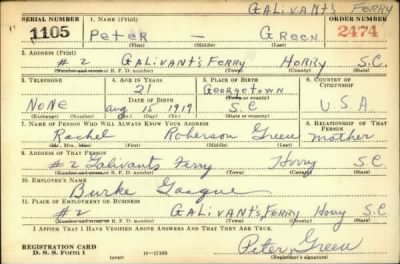 GALIVANT'S FERRY
SERIAL NUMBER 1. NAME (Print) ORDER NUMBER
1105 Peter — Green 2474
(First) (Middle) (Last)
2. ADDRESS (Print)
# 2 GALIVANT'S FERRY HORRY S.C.
(Number and street or R. F. D. number) (Town) (County) (State)
3. TELEPHONE 4. AGE IN YEARS 5. PLACE OF BIRTH 6. COUNTRY OF CITIZENSHIP
21 Georgetown
NONE DATE OF BIRTH Aug 15 1919 S.C. U.S.A
(Exchange) (Number) (Mo.) (Day) (Yr.) (State or country)
7. NAME OF PERSON WHO WILL ALWAYS KNOW YOUR ADDRESS 8. RELATIONSHIP OF THAT PERSON
Rachel Roberson Green Mother
(Mr., Mrs., Miss) (First) (Middle) (Last)
9. ADDRESS OF THAT PERSON
# 2 Galivants Ferry Horry S.C
(Number and street or R. F. D. number) (Town) (County) (State)
10. EMPLOYER'S NAME
Burke Gasque
11. PLACE OF EMPLOYMENT OR BUSINESS
#2 GALIVANT'S FERRY Horry S.C
(Number and street or R. F. D. number) (Town) (County) (State)
I AFFIRM THAT I HAVE VERIFIED ABOVE ANSWERS AND THAT THEY ARE TRUE.
REGISTRATION CARD
D. S. S. Form 1 (over) 16—17105
Peter Green
(Registrant's signature)